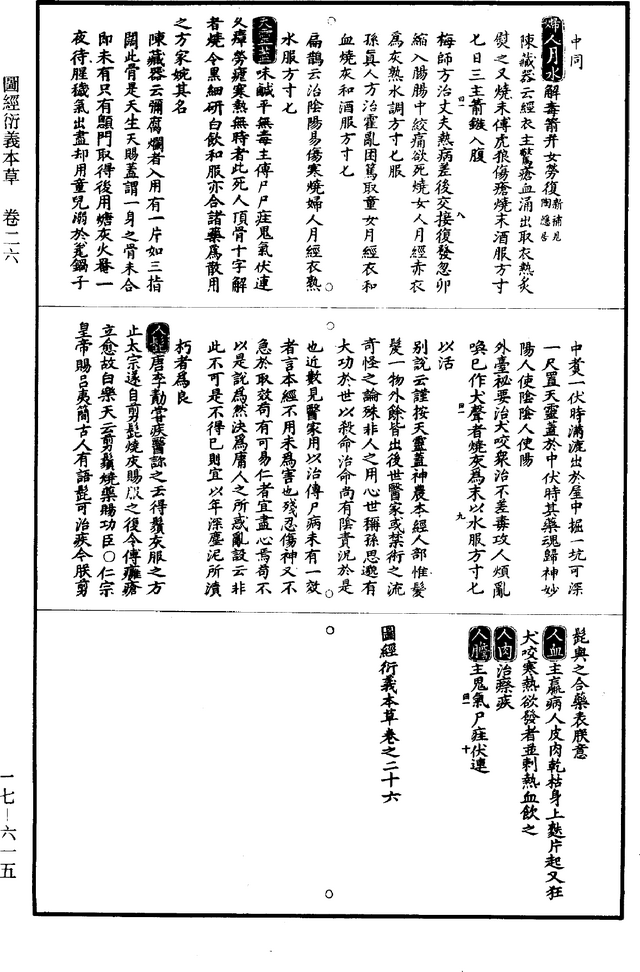 中同
婦人月水解毒箭并女勞復新補見陶隱居
陳藏器云經衣主驚瘡血涌出取衣熱炙
熨之又燒末傅虎狼傷瘡燒末酒服方寸
七日三主箭鏃入腹
梅師方治丈夫熱病差後交接復發忽卵
縮入腸腸中絞痛欲死燒女人月經赤衣
為灰熱水調方寸七服
孫真人方治霍亂困篤取童女月經衣和
血燒灰和酒服方寸七
扁鵲云治陰陽易傷寒燒婦人月經衣熱
水服方寸七
天靈蓋味鹹平無毒主傳尸尸疰鬼氣伏連
久瘴勞瘧寒熱無時者此死人頂骨十字解
者燒令黑細研白飲和服亦合諸藥為散用
之方家婉其名
陳藏器云彌腐爛者入用有一片如三指
闊此骨是天生天賜蓋謂一身之骨未合
即未有只有顖門取得後用煻灰火罨一
夜待腥穢氣出盡却用童兒溺於瓷鍋子
中煑一伏時滿漉出於屋中掘一坑可深
一尺置天靈蓋於中伏時其藥魂歸神妙
陽人使陰陰人使陽
外臺秘要治犬咬衆治不差毒攻人煩亂
喚已作犬聲者燒灰為末以水服方寸七
以活
別說云謹按天靈蓋神農本經人部惟髮
髮一物外餘皆出後世醫家或禁術之流
奇怪之論殊非人之用心世稱孫思邈有
大功於世以殺命治命尚有陰責況於是
也近數見醫家用以治傳尸病未有一效
者言本經不用未為害也殘忍傷神又不
急於取效苟有可易仁者宜盡心焉苟不
以是說為然決為庸人之所惑亂設云非
此不可是不得已則宜以年深塵泥所漬
朽者為良
人髭唐李勣嘗疾醫診之云得鬚灰服之方
止太宗遂自剪髭燒灰賜服之復令傅癰瘡
立愈故白樂天云剪鬚燒藥賜功臣○仁宗
皇帝賜呂夷簡古人有語髭可治疾今朕剪
髭與之合藥表朕意
人血主羸病人皮肉乾枯身上麩片起又狂
犬咬寒熱欲發者並刺熱血飲之
人肉治瘵疾
人膽主鬼氣尸疰伏連
圖經衍義本草卷之二十六
圖經衍義本草 卷二六
一七—六一五